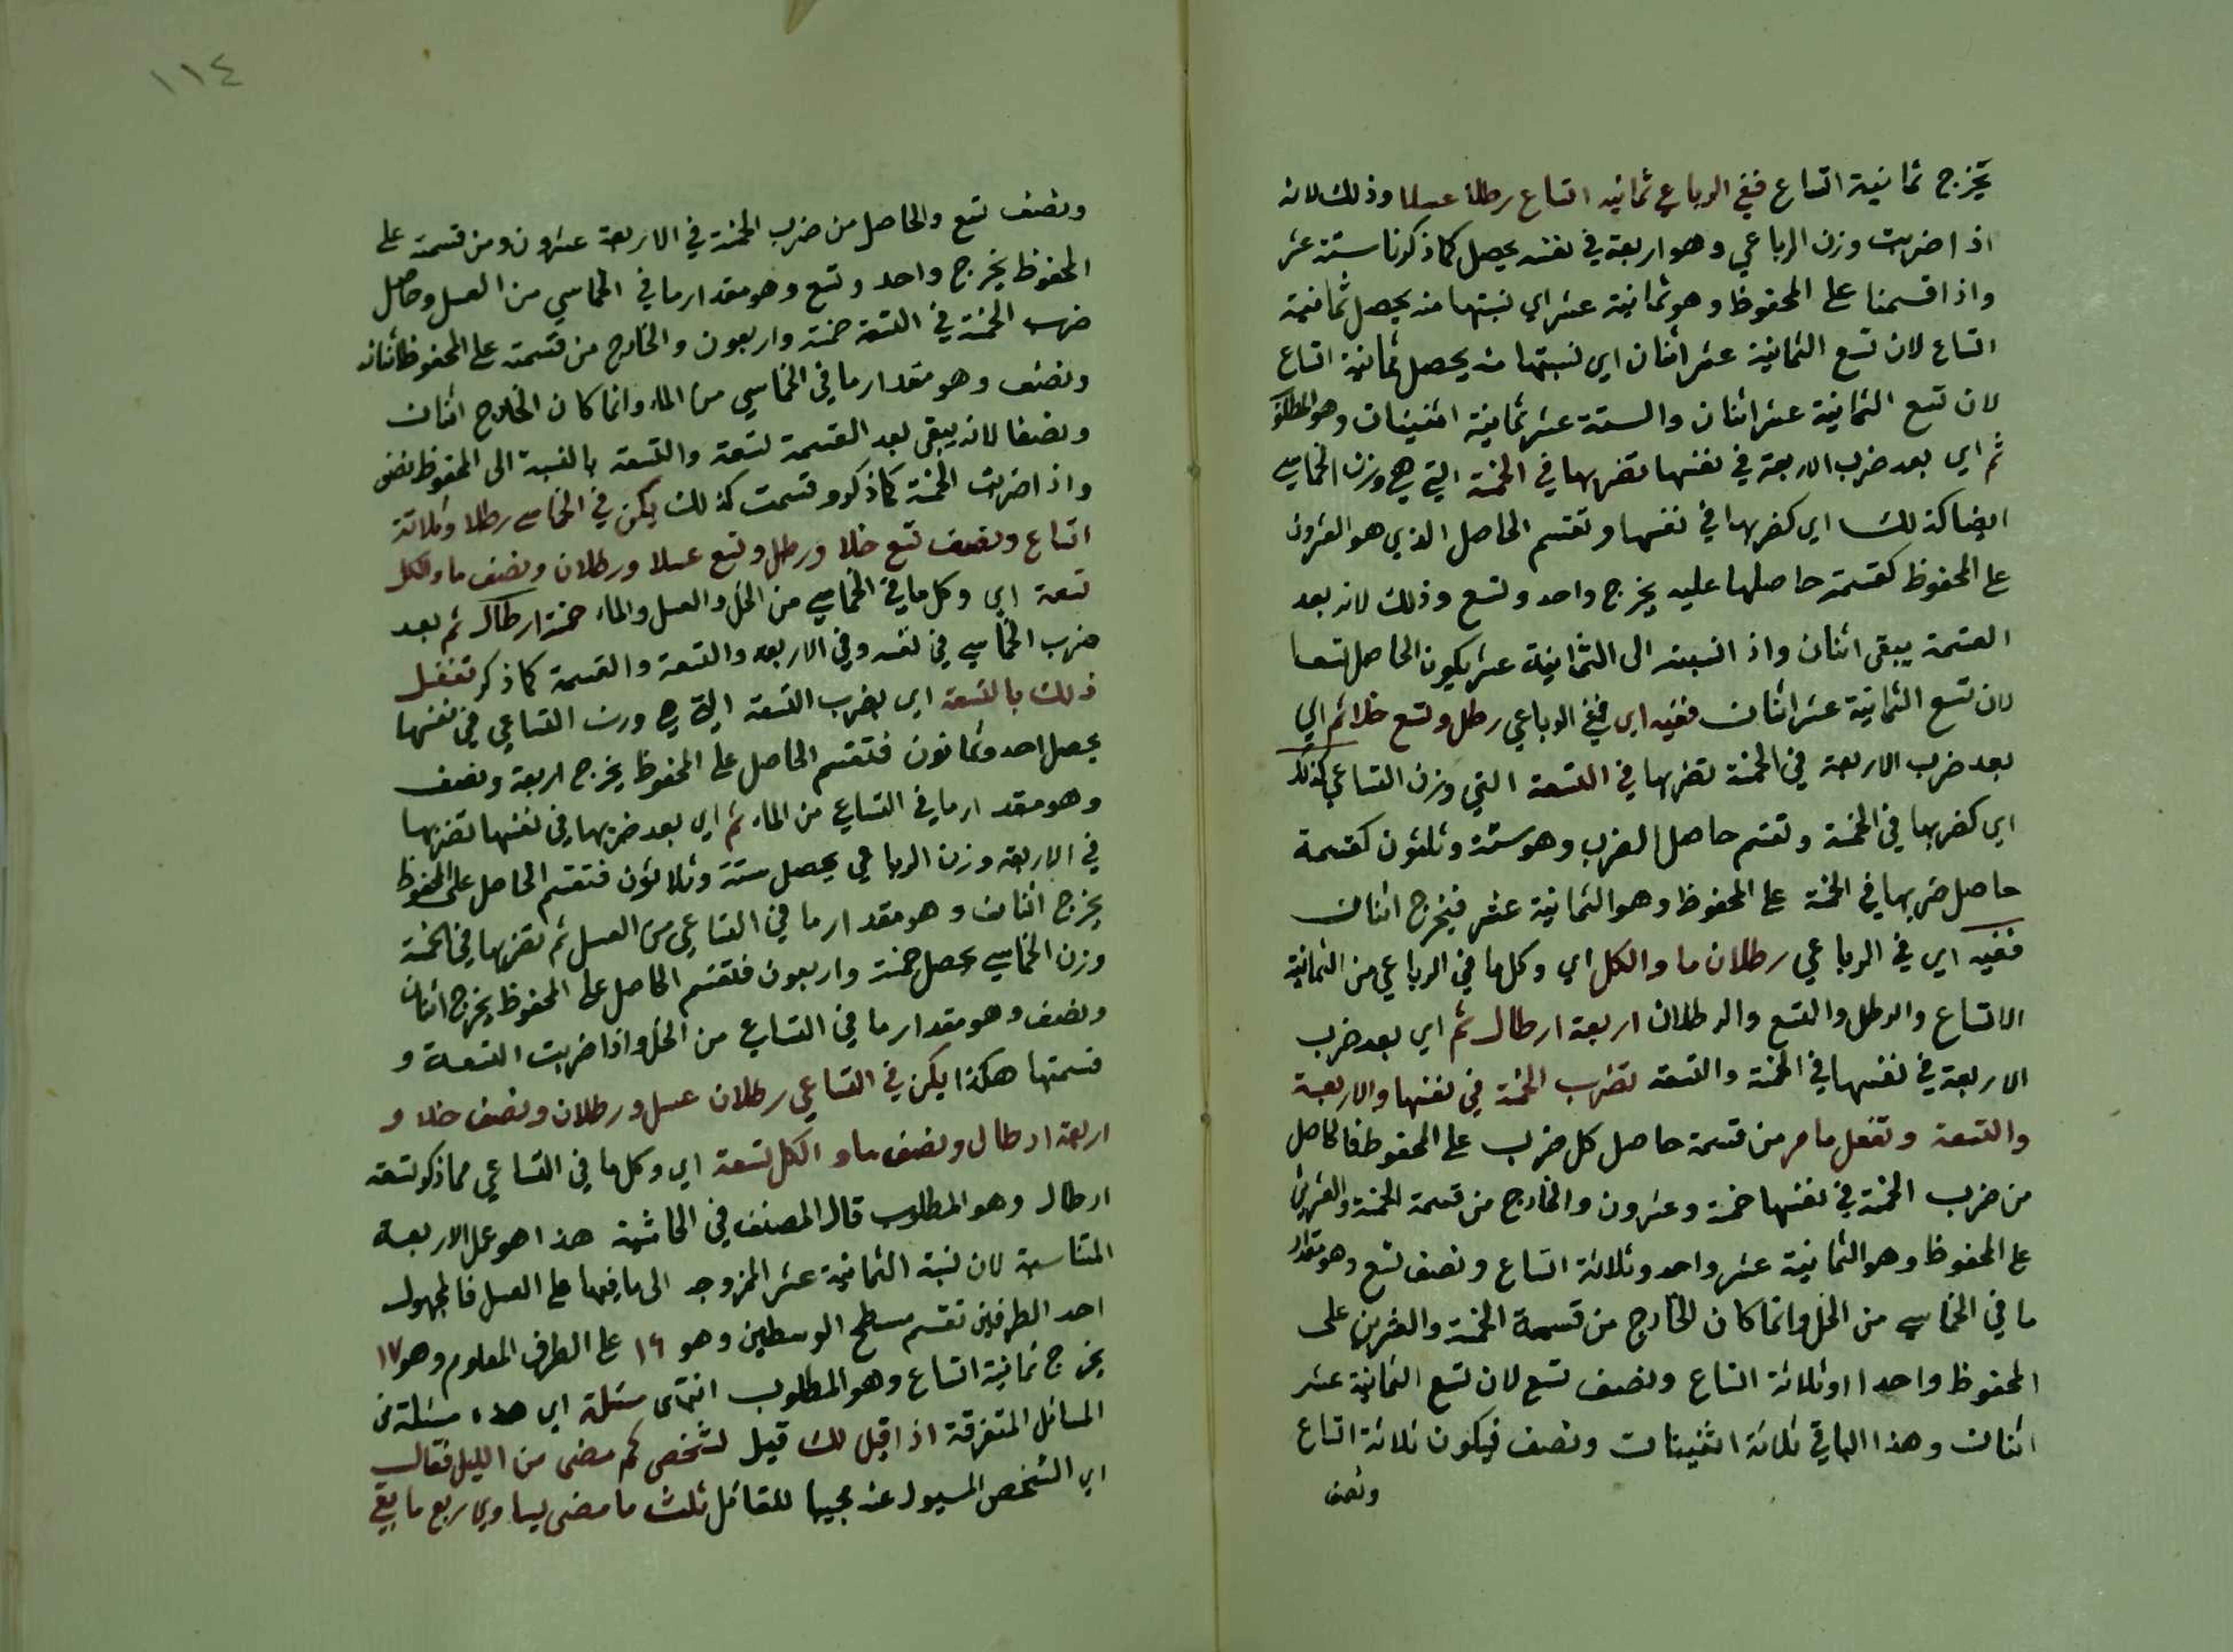 يخرج ثمانية اتساع ففي الرباعي ثمانيه اتساع رطلا عسلا وذلك لانه
اذا ضربت وزن الرباعي وهو اربعة في نفسه يحصل كما ذكرنا ستة عشر
واذا قسمنا على المحفوظ وهو ثمانية عشر اي نسبتها منه يحصل ثمانية
اتساع لان تسع الثمانية عشر اثنان اي نسبتها منه يحصل ثمانية اتساع
لان تسع الثمانية عشر اثنان والستة عشر ثمانية اثنينات وهو المطلوب
ثم اي بعد ضرب الاربعة في نفسها تضربها في الخمسة التي هي وزن الخماسي
ايضا كذلك اي كضربها في نفسها وتقسم الحاصل الذي هو العشرون
على المحفوظ كقسمة حاصلها عليه يخرج واحد وتسع وذلك لانه بعد
القسمة يبقى اثنان واذا انسبته الى الثمانية عشر يكون الحاصل تسعا
لان تسع الثمانية عشر اثنان ففيه اي ففي الرباعي رطل وتسع خلا ثم اي
بعد ضرب الاربعة في الخمسة تضربها في التسعة التي وزن التساعي كذلك
اي كضربها في الخمسة وتقسم حاصل الضرب وهو ستة وثلثون كقسمة
حاصل ضربها في الخمسة على المحفوظ وهو الثمانية عشر فيخرج اثنان
ففيه اي في الرباعي رطلان ماء والكل اي وكل ما في الرباعي من الثمانية
الاتساع والرطل والتسع والرطلان اربعة ارطال ثم اي بعد ضرب
الاربعة في نفسها في الخمسة والتسعة تضرب الخمسة في نفسها والاربعة
والتسعة وتفعل ما مر من قسمة حاصل كل ضرب على المحفوظ فالحاصل
من ضرب الخمسة في نفسها خمسة وعشرون والخارج من قسمة الخمسة والعشرين
على المحفوظ وهو الثمانية عشر واحد وثلاثة اتساع ونصف تسع وهو مقدار
ما في الخماسي من الخل وانما كان الخارج من قسمة الخمسة والعشرين على
المحفوظ واحدا وثلاثة اتساع ونصف تسع لان تسع الثمانية عشر
اثنان وهذا الباقي ثلاثة اثنينات ونصف فيكون ثلاثة اتساع
ونصف
١١٤
ونصف تسع والحاصل من ضرب الخمسة في الاربعة عشرون ومن قسمته على
المحفوظ يخرج واحد وتسع وهو مقدار ما في الخماسي من العسل وحاصل
ضرب الخمسة في التسعة خمسة واربعون والخارج من قسمته على المحفوظ اثنان
ونصف وهو مقدار ما في الخماسي من الماء وانما كان الخارج اثنان
ونصفا لانه يبقى بعد القسمة تسعة والتسعة بالنسبة الى المحفوظ نصف
واذا ضربت الخمسة كما ذكر وقسمت كذلك يكن في الخماسي رطلا وثلاثة
اتساع ونصف تسع خلا ورطل وتسع عسلا ورطلان ونصف ماء والكل
تسعة اي وكل ما في الخماسي من الخل والعسل والماء خمسة ارطال ثم بعد
ضرب الخماسي في نفسه وفي الاربعه والتسعة والقسمة كما ذكر تفعل
ذلك بالتسعة اي بضرب التسعة التي هي وزن التساعي في نفسها
يحصل احد وثمانون فتقسم الحاصل على المحفوظ يخرج اربعة ونصف
وهو مقدار ما في التساعي من الماء ثم اي بعد ضربها في نفسها تضربها
في الاربعة وزن الرباعي يحصل ستة وثلاثون فتقسم الحاصل على المحفوظ
يخرج اثنان وهو مقدار ما في التساعي من العسل ثم تضربها في الخمسة
وزن الخماسي يحصل خمسة واربعون فتقسم الحاصل على المحفوظ يخرج اثنان
ونصف وهو مقدار ما في التساعي من الخل واذا ضربت التسعة و
قسمتها هكذا يكن في التساعي رطلان عسل ورطلان ونصف خلا و
اربعة ارطال ونصف ماء والكل تسعة اي وكل ما في التساعي مما ذكر تسعة
ارطال وهو المطلوب قال المصنف في الحاشية هذا هو عمل الاربعة
المتناسبة لان نسبة الثمانية عشر الممزوجه الى ما فيها على العسل فالمجهول
احد الطرفين نقسم مسطح الوسطين وهو ١٦ على الطرف المعلوم وهو ١٧
يخرج ثمانية اتساع وهو المطلوب انتهى مسئلة اي هذه مسئلة من
المسائل المتفرقة اذا قيل لك قيل لشخص كم مضى من الليل فقال
اي الشخص المسيول عنه مجيبا للقائل ثلث ما مضى يساوي ربع ما بقي